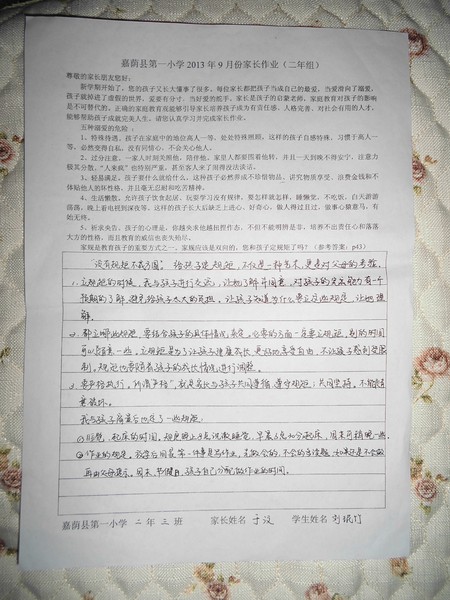 嘉荫县第一小学 2013 年 9 月份家长作业（二年组）
尊敬的家长朋友您好：
新学期开始了，您的孩子又长大懂事了很多，每位家长都把孩子当成自己的最爱，当爱滑向了溺爱，
孩子就掉进了虚假的世界，爱要有分寸，当好爱的舵手。家长是孩子的启蒙老师，家庭教育对孩子的影响
是不可替代的。正确的家庭教育观能够引导家长培养孩子成为有责任感、人格完善、对社会有用的人才，
能够帮助孩子成就完美人生。请您认真学习并完成家长作业。
五种溺爱的危险：
1、特殊待遇。孩子在家庭中的地位高人一等，处处特殊照顾，这样的孩子自感特殊，习惯于高人一
等，必然变得自私，没有同情心，不会关心他人。
2、过分注意。一家人时刻关照他，陪伴他，家里人都要围着他转，并且一天到晚不得安宁，注意力
极其分散，"人来疯"也特别严重，甚至客人来了闹得没法谈话。
3、轻易满足。孩子要什么就给什么，这种孩子必然养成不珍惜物品、讲究物质享受、浪费金钱和不
体贴他人的坏性格，并且毫无忍耐和吃苦精神。
4、生活懒散。允许孩子饮食起居、玩耍学习没有规律，要怎样就怎样，睡懒觉，不吃饭，白天游游
荡荡，晚上看电视到深夜等。这样的孩子长大后缺乏上进心、好奇心，做人得过且过，做事心猿意马，有
始无终。
5、祈求央告。孩子的心理是，你越央求他越扭捏作态，不但不能明辨是非，培养不出责任心和落落
大方的性格，而且教育的威信也丧失殆尽。
家规是家庭教育的重要方式之一，家规应该是双向的，您和孩子定规矩了吗？（参考答案：p43）
"没有规矩不成方圆"给孩子定规矩，不仅是一种艺术，更是对父母的考验。
1、立规矩的时候，我与孩子进行交流，让她了解并同意，对孩子的
了解，避免给孩子太大的 让孩子知道为什么要立这些规矩，让她理
解。
2、都立哪些规矩，要结合孩子的具体情况来定。必要的方面一定要立规矩，别的时间
可以 一些，立规矩是为了让孩子健康成长 享受自由，不让孩子感到受限
制。规矩也要随着孩子的成长情况进行调整。
3、要严格执行，所谓严格，就是家长与孩子共同遵循、遵守规矩；共同坚持，不能
我与孩子商量后也定了一些规矩：
①睡觉、起床的时间，规定晚上8点洗漱睡觉；早晨6点 分起床，周末可稍晚一些。
②作业的规定。放学后回家第一件事是写作业，先做会的，不会的
再由父母 周末、节假日，孩子自己分配做作业的时间。
嘉荫县第一小学 二 年 三 班 家长姓名 学生姓名